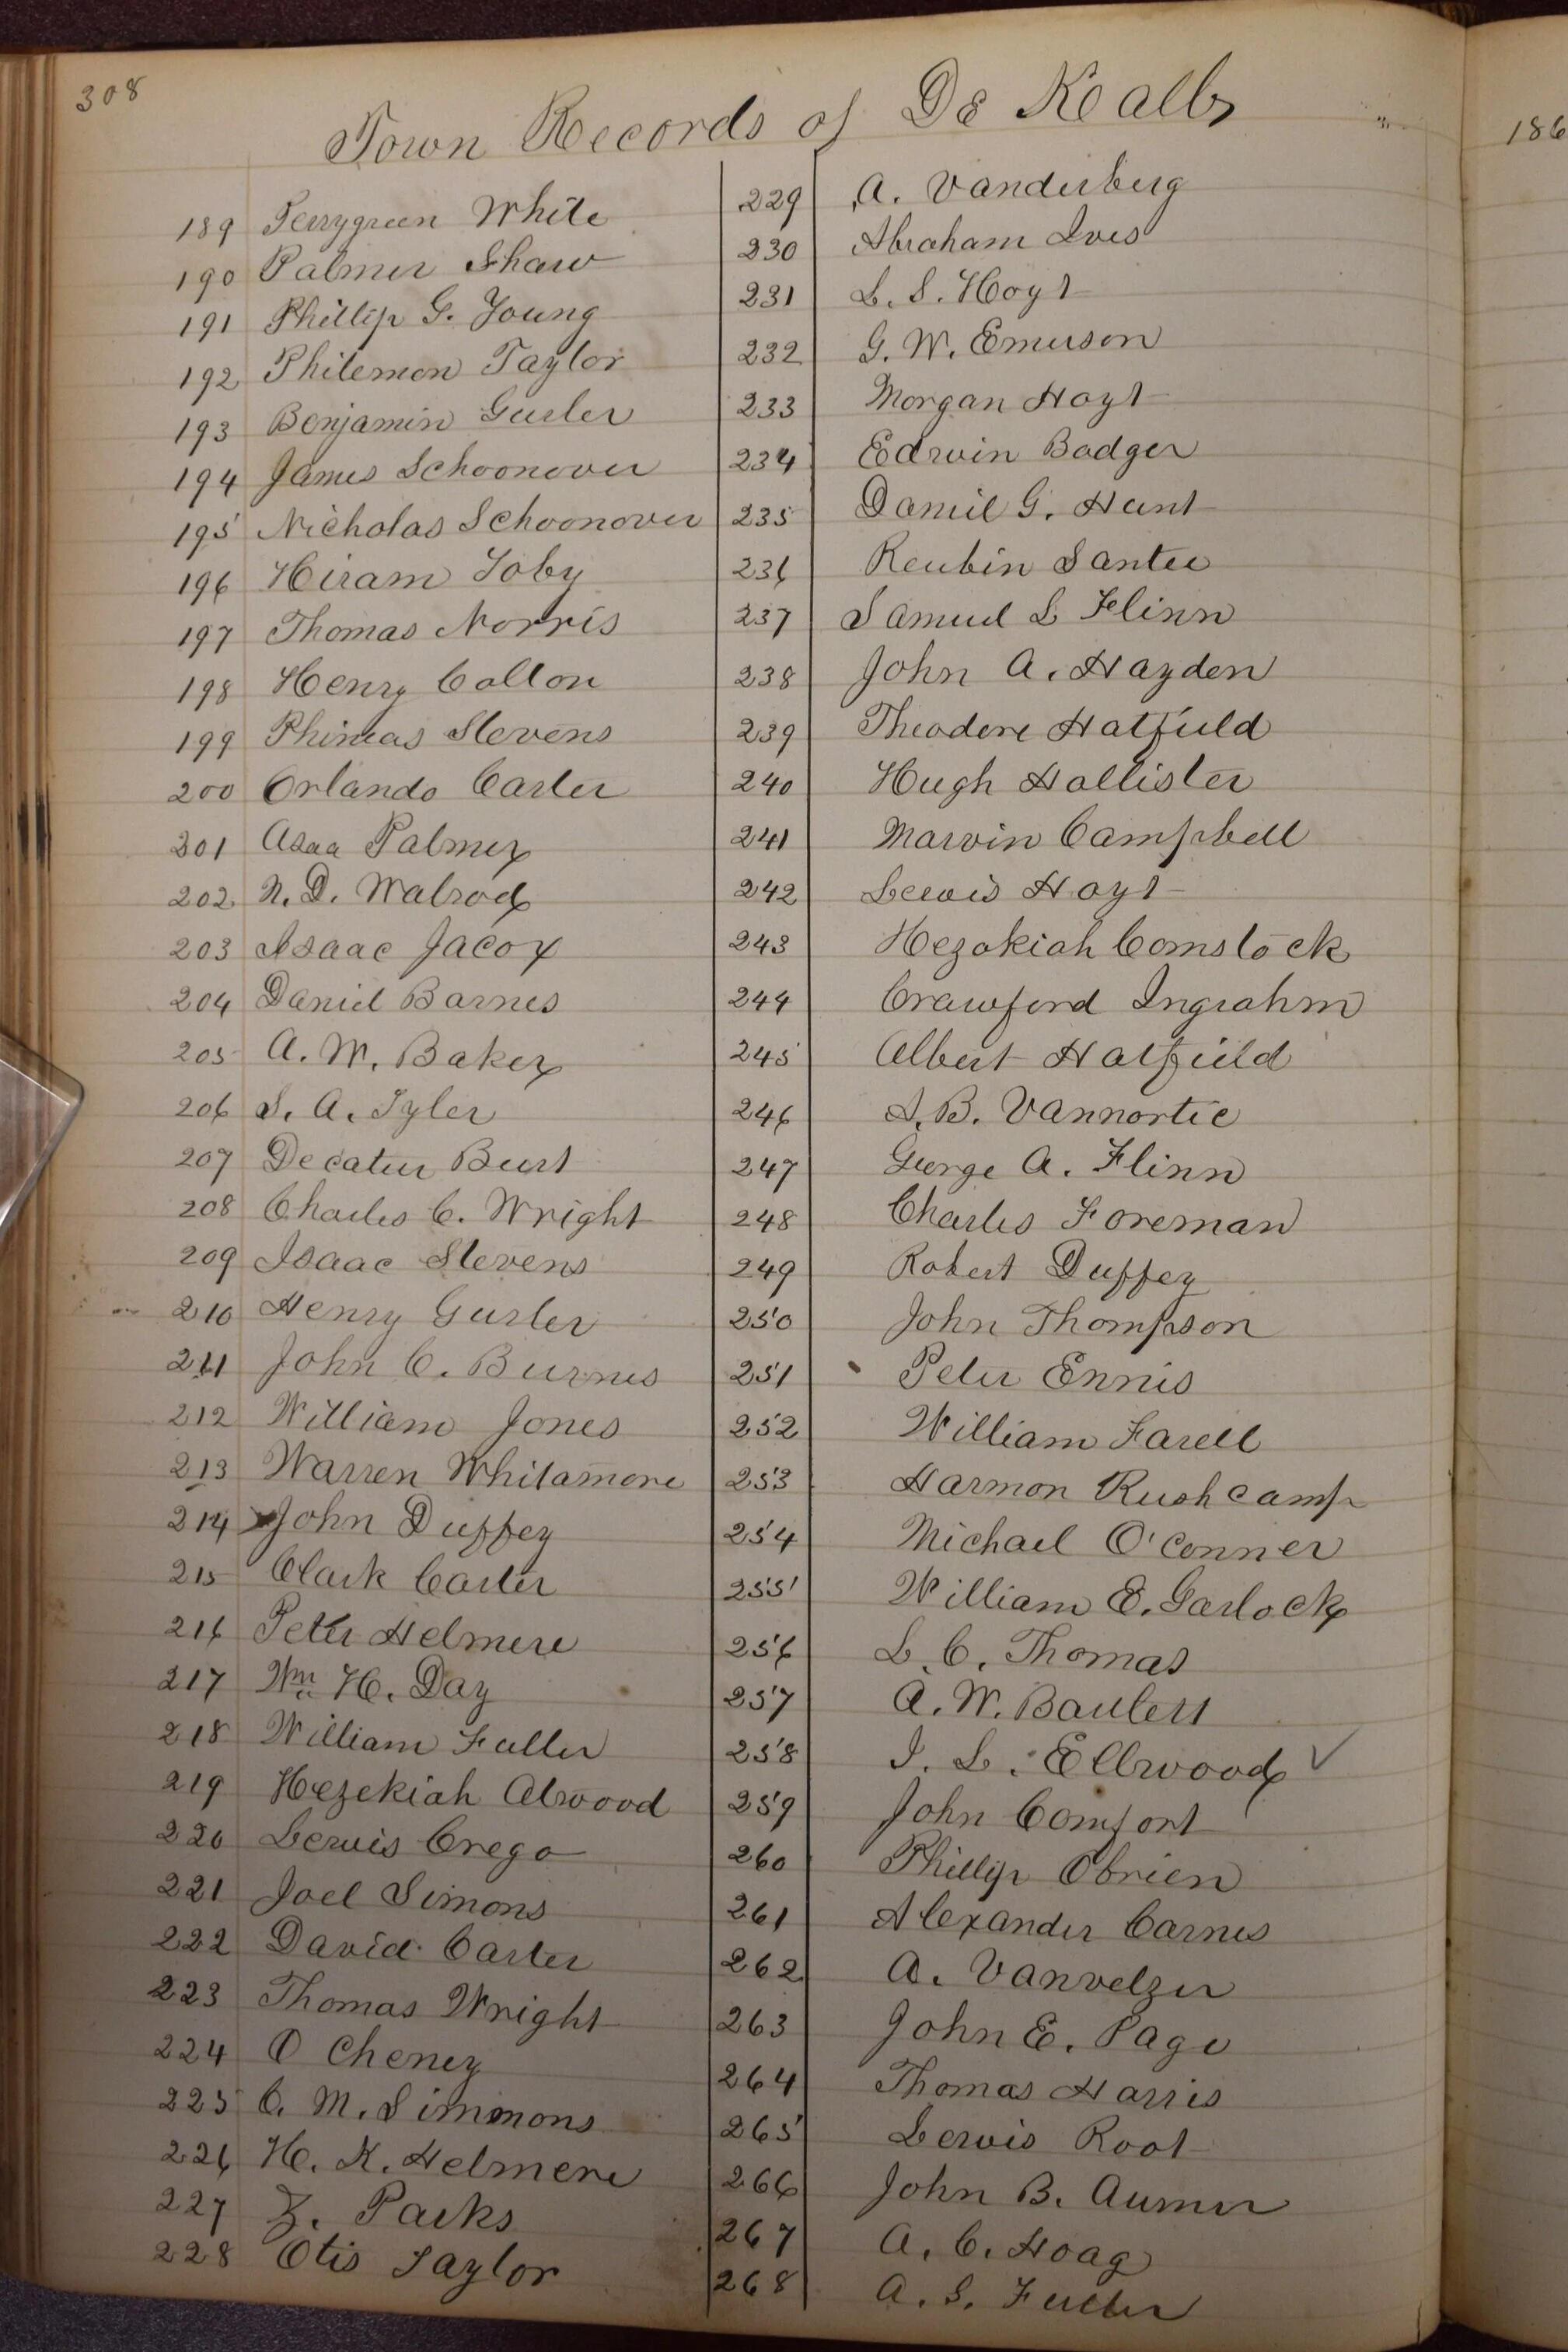 308
Town Records of De Kalb
189 Perrygreen White
190 Palmer Shaw
191 Phillip G. Young
192 Philemon Taylor
193 Benjamin Gurler
194 James Schoonover
195 Nicholas Schoonover
196 Hiram Toby
197 Thomas Norris
198 Henry Collon
199 Phineas Stevens
200 Orlando Carter
201 Asaa Palmer
202 N. D. Walrod
203 Isaac Jacox
204 Daniel Barnes
205 A. W. Baker
206 S. A. Tyler
207 Decatur Burt
208 Charles C. Wright
209 Isaac Stevens
210 Henry Gurler
211 John C. Burnes
212 William Jones
213 Warren Whitamore
214 John Duffey
215 Clark Carter
216 Peter Helmere
217 Wm H. Day
218 William Fuller
219 Hezekiah Atwood
220 Lewis Crego
221 Joel Simons
222 David Carter
223 Thomas Wright
224 O Cheney
225 C. M. Simmons
226 H. K. Helmere
227 Z. Parks
228 Otis Taylor
229 A. Vanderberg
230 Abraham Ives
231 L. S. Hoyt
232 G. W. Emerson
233 Morgan Hoyt
234 Edwin Badger
235 Daniel G. Hunt
236 Reubin Santee
237 Samuel L Flinn
238 John A. Hayden
239 Theodore Hatfield
240 Hugh Hollister
241 Marvin Campbell
242 Lewis Hoyt
243 Hezakiah Comstock
244 Crawford Ingrahm
245 Albert Hatfield
246 A. B. Vannortic
247 George A. Flinn
248 Charles Foreman
249 Robert Duffey
250 John Thompson
251 Peter Ennis
252 William Farell
253 Harmon Rushcamp
254 Michael O'Conner
255 William E. Garlock
256 L. C. Thomas
257 A. W.
258 I. L. Ellwood
259 John Comfort
260 Phillip Obrien
261 Alexander Carnes
262 A. Vanvelzer
263 John E. Page
264 Thomas Harris
265 Lewis Root
266 John B. Aumer
267 A. C. Hoag
268 A. S. Fuller
186